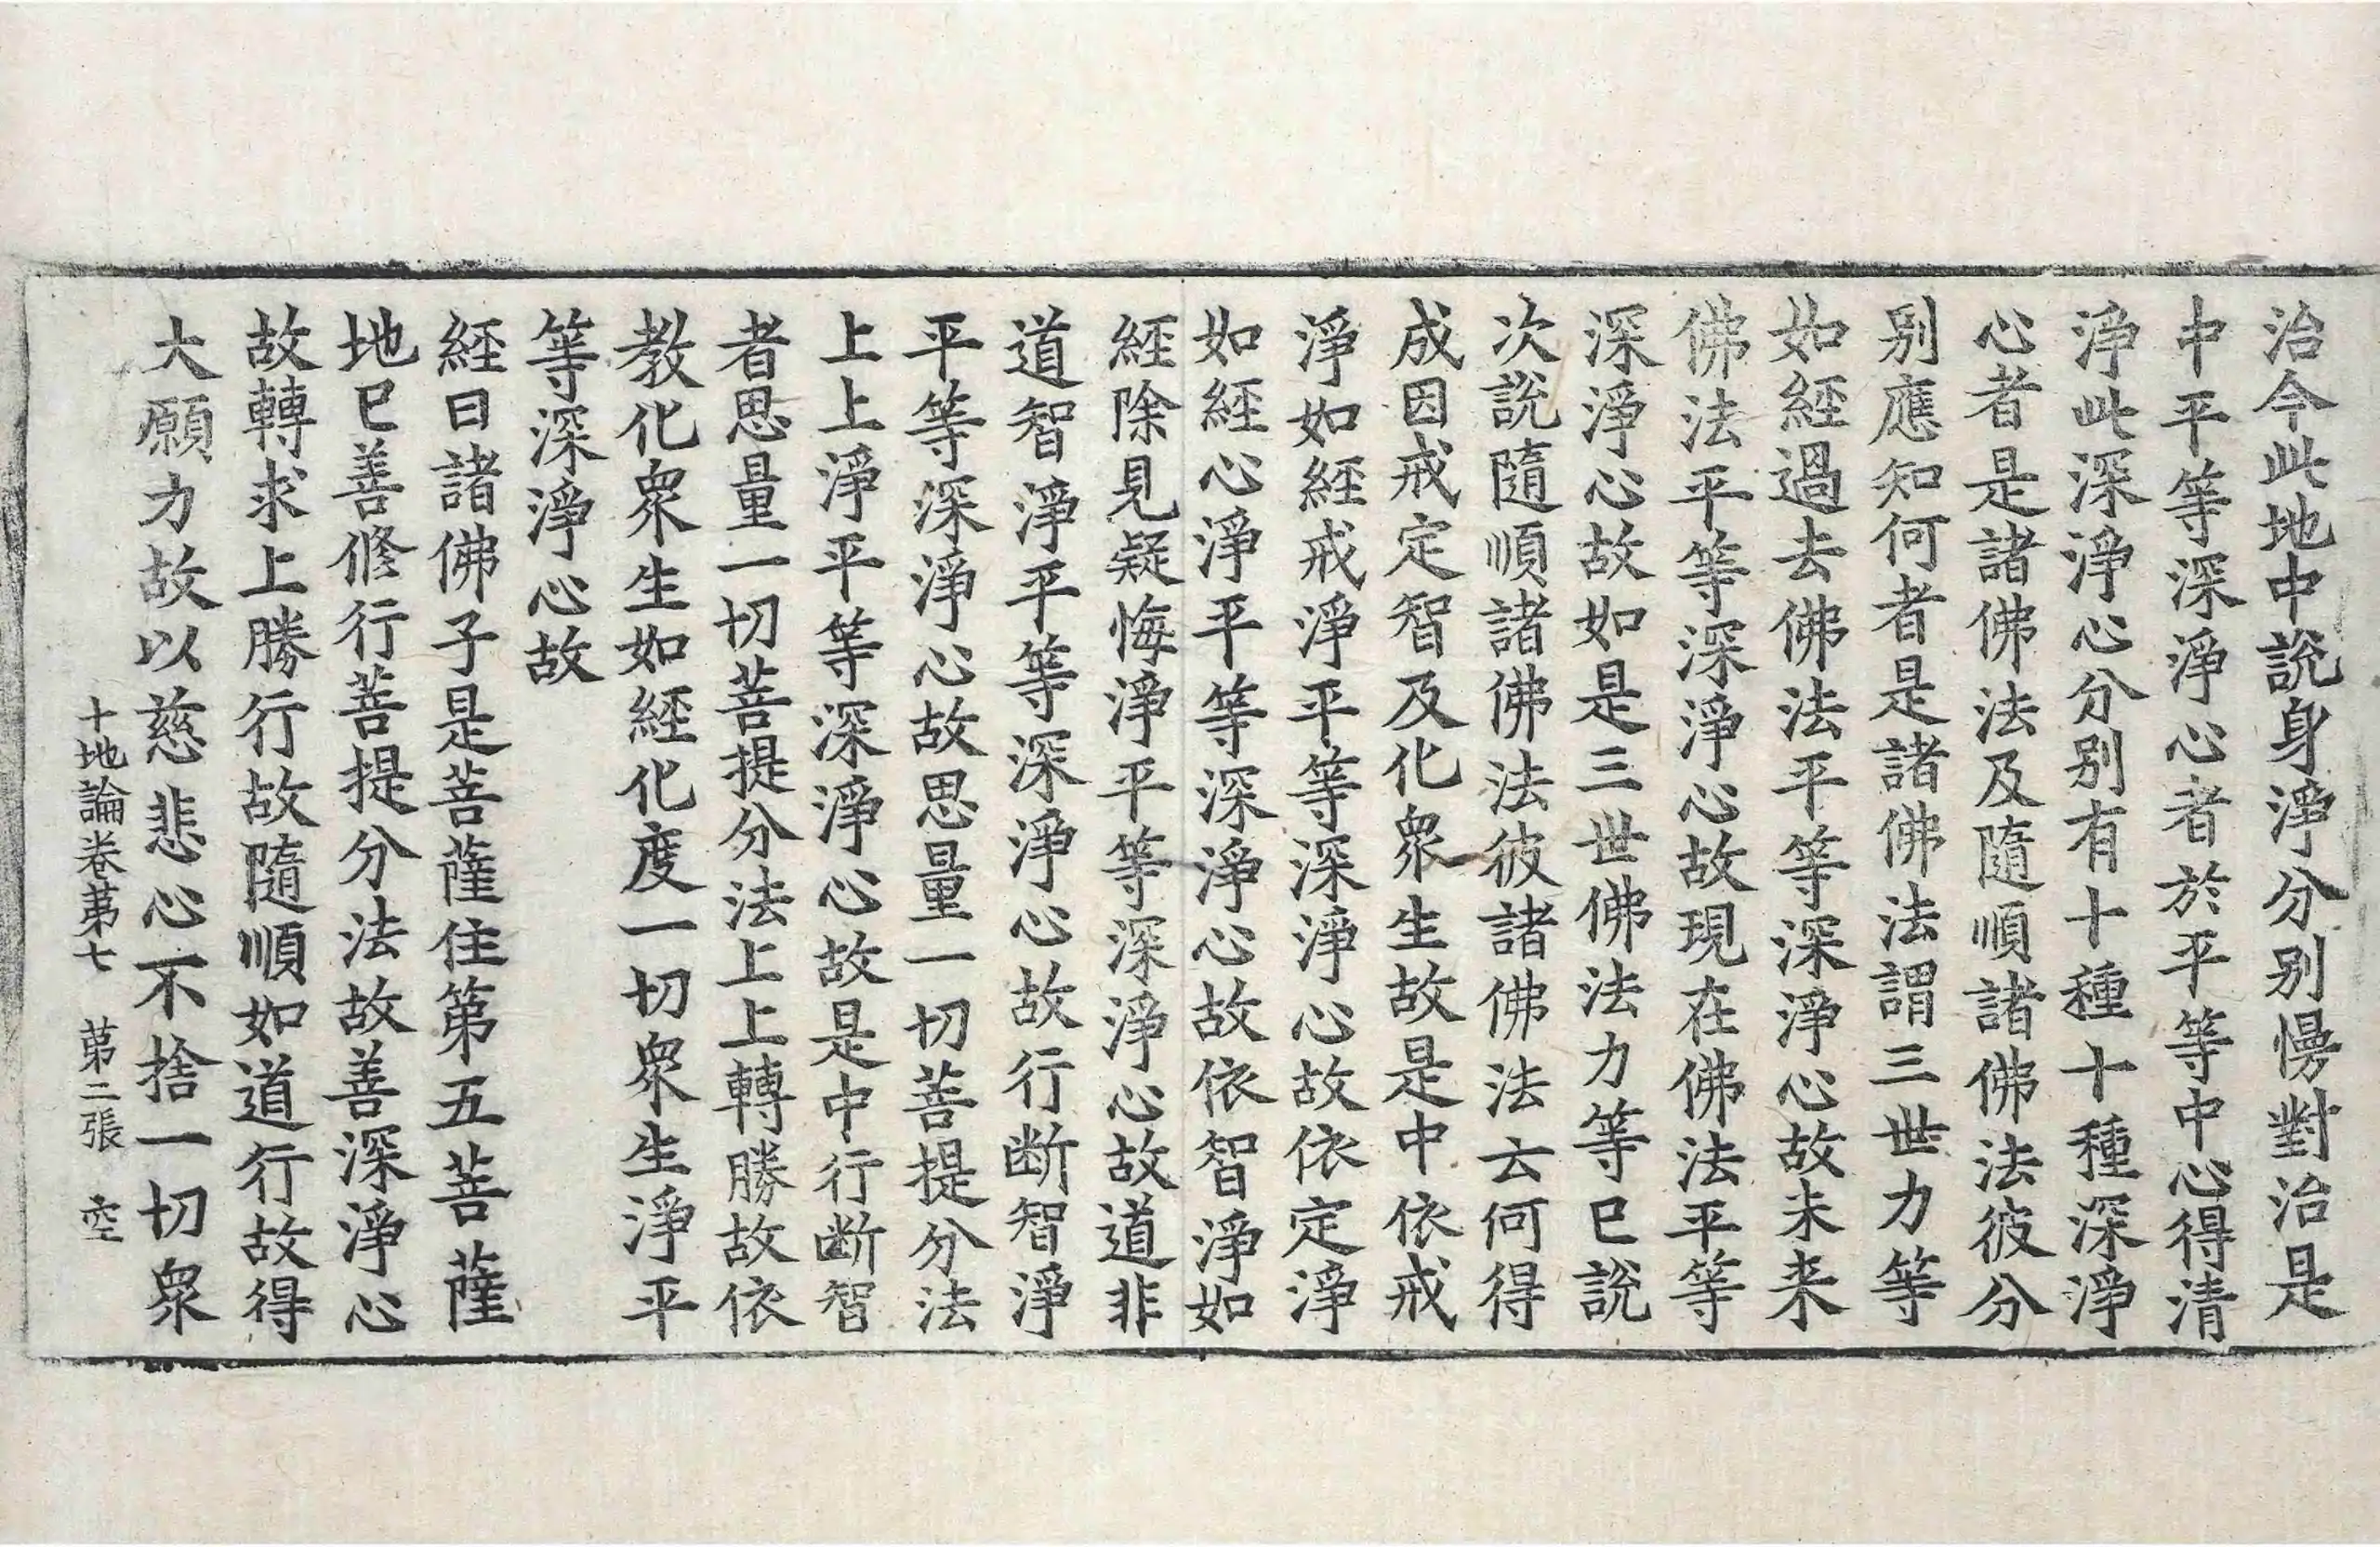 治今此地中說身淨分別慢對治是
中平等深淨心者於平等中心得清
淨此深淨心分別有十種十種深淨
心者是諸佛法及隨順諸佛法彼分
別應知何者是諸佛法謂三世力等
如經過去佛法平等深淨心故未来
佛法平等深淨心故現在佛法平等
深淨心故如是三世佛法力等已說
次說隨順諸佛法彼諸佛法云何得
成因戒定智及化衆生故是中依戒
淨如經戒淨平等深淨心故依定淨
如經心淨平等深淨心故依智淨如
經除見疑悔淨平等深淨心故道非
道智淨平等深淨心故行断智淨
平等深淨心故思量一切菩提分法
上上淨平等深淨心故是中行断智
者思量一切菩提分法上上轉勝故依
教化衆生如經化度一切衆生淨平
等深淨心故
經曰諸佛子是菩薩住第五菩薩
地已善修行菩提分法故善深淨心
故轉求上勝行故隨順如道行故得
大願力故以慈悲心不捨一切衆
十地論卷第七 第二張 空